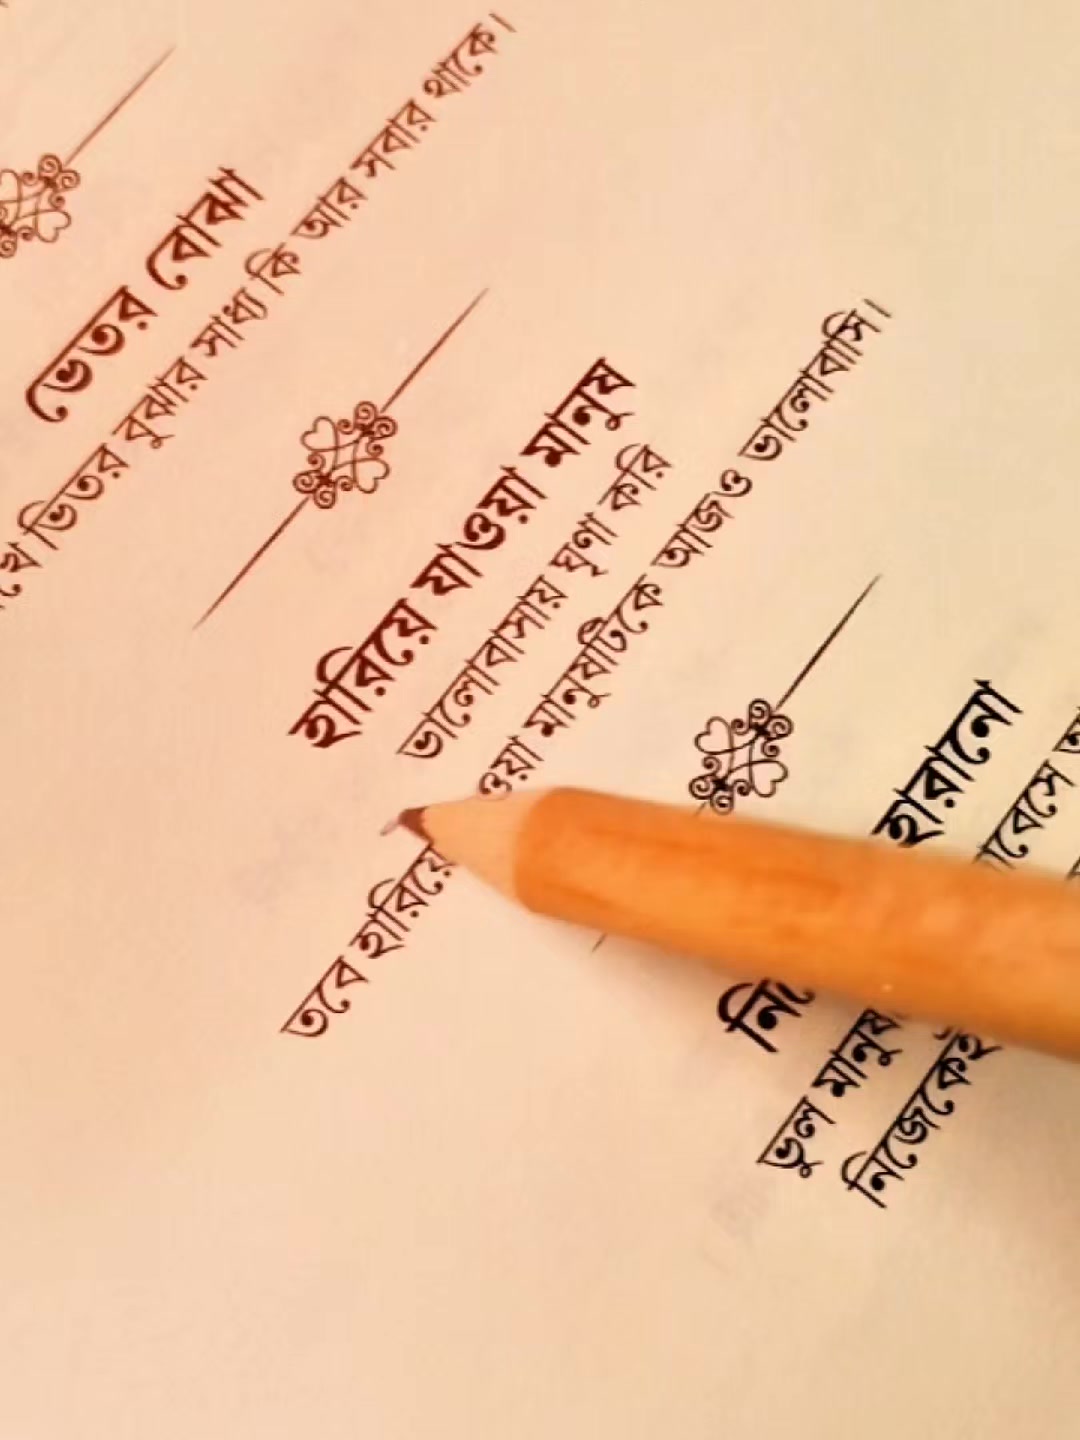 ভেতর বোঝা
ভিতর বুঝার সাধ্য কি আর সবার থাকে।
হারিয়ে যাওয়া মানুষ
ভালোবাসায় ঘৃণা করি
তবে হারিয়ে মানুষটিকে আজও ভালোবাসি।
হারানো
ভুল মানুষ
নিজেকেই